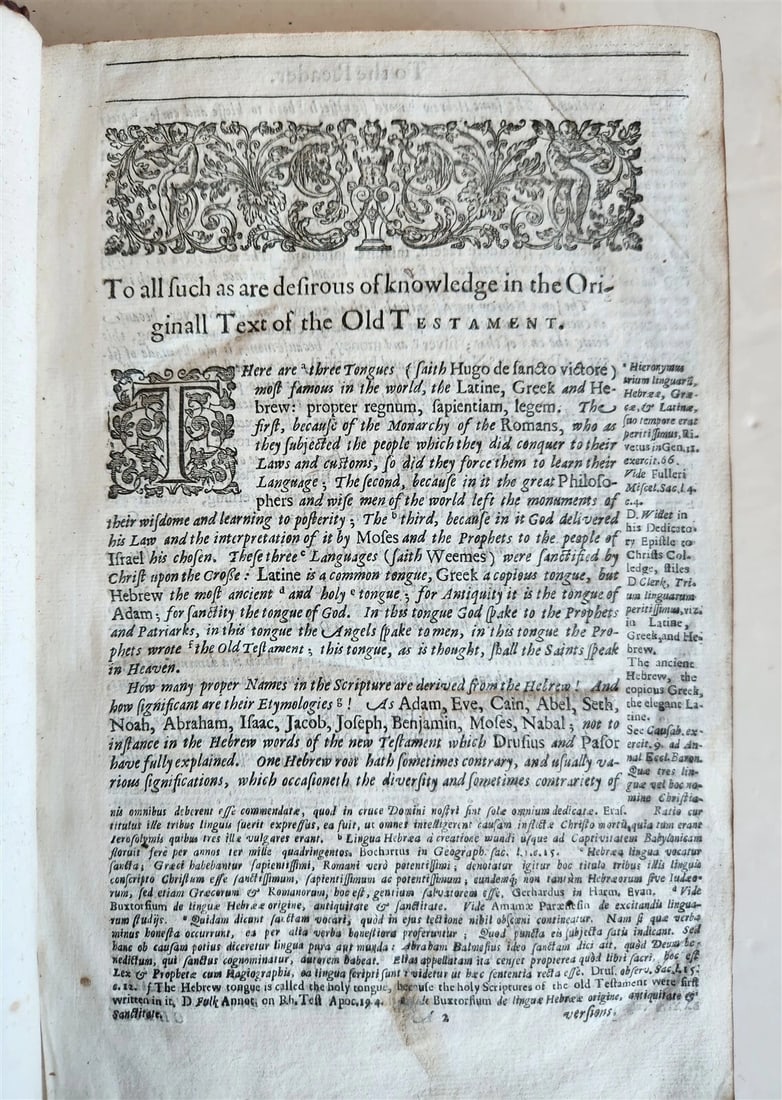 To all ſuch as are deſirous of knowledge in the Ori-
ginall Text of the Old TESTAMENT.
THere are ᵃ three Tongues (ſaith Hugo de ſancto victore)
moſt famous in the world, the Latine, Greek and He-
brew: propter regnum, ſapientiam, legem. The
firſt, becauſe of the Monarchy of the Romans, who as
they ſubjected the people which they did conquer to their
Laws and cuſtoms, ſo did they force them to learn their
Language; The ſecond, becauſe in it the great Philoſo-
phers and wiſe men of the world left the monuments of
their wiſdome and learning to poſterity; The ᵇ third, becauſe in it God delivered
his Law and the interpretation of it by Moſes and the Prophets to the people of
Iſrael his choſen. Theſe three ᶜ Languages (ſaith Weemes) were ſanctified by
Chriſt upon the Croſſe: Latine is a common tongue, Greek a copious tongue, but
Hebrew the moſt ancient ᵈ and holy ᵉ tongue; for Antiquity it is the tongue of
Adam; for ſanctity the tongue of God. In this tongue God ſpake to the Prophets
and Patriarks, in this tongue the Angels ſpake to men, in this tongue the Pro-
phets wrote ᶠ the Old Teſtament; this tongue, as is thought, ſhall the Saints ſpeak
in Heaven.
How many proper Names in the Scripture are derived from the Hebrew! And
how ſignificant are their Etymologies ᵍ! As Adam, Eve, Cain, Abel, Seth,
Noah, Abraham, Iſaac, Jacob, Joſeph, Benjamin, Moſes, Nabal; not to
inſtance in the Hebrew words of the new Teſtament which Druſius and Paſor
have fully explained. One Hebrew root hath ſometimes contrary, and uſually va-
rious ſignifications, which occaſioneth the diverſity and ſometimes contrariety of
ᵃ Hieronymus
trium linguarū,
Hebrææ, Græ-
cæ, & Latinæ,
ſuo tempore erat
peritiſſimus, Ri-
vetus in Gen. 12.
exercit. 66.
Vide Fulleri
Miſcel. Sac. l. 4.
c. 4.
D. Willet in
his Dedicato-
ry Epiſtle to
Chriſts Col-
ledge, ſtiles
D Clerk, Tri-
um linguarum
peritiſſimus, viz.
in Latine,
Greek, and He-
brew.
The ancient
Hebrew, the
copious Greek,
the elegant La-
tine.
See Cauſab. ex-
ercit. 9. ad An-
nal Eccl. Baron.
Quæ tres lin-
guæ vel hoc no-
mine Chriſtia-
nis omnibus deberent eſſe commendatæ, quod in cruce Domini noſtri ſint ſolæ omnium dedicatæ. Eraſ. Ratio cur
titulus ille tribus linguis fuerit expreſſus, ea fuit, ut omnes intelligerent cauſam inflictæ Chriſto mortis, quia tum erant
Ieroſolymis quibus tres illæ vulgares erant. ᵇ Lingua Hebræa à creatione mundi uſque ad Captivitatem Babylonicam
floruit ferè per annos ter mille quadringentos. Bochartus in Geograph. ſac. l. 1. c. 15. ᶜ Hebræa lingua vocatur
ſancta; Græci habebantur ſapientiſſimi, Romani verò potentiſſimi; denotatur igitur hoc titulo tribus illis linguis
conſcripto Chriſtum eſſe ſanctiſſimum, ſapientiſſimum ac potentiſſimum; eundemq; non tantùm Hebræorum ſive Iudæo-
rum, ſed etiam Græcorum & Romanorum, hoc eſt, gentium ſalvatorem eſſe, Gerhardus in Harm. Evan. ᵈ Vide
Buxtorfium de linguæ Hebrææ origine, antiquitate & ſanctitate. Vide Amamæ Parænefin de excitandis lingua-
rum ſtudijs. ᵉ Quidam dicunt ſanctam vocari, quòd in ejus lectione nihil obſcœni contineatur. Nam ſi quæ verba
minus honeſta occurrunt, ea per alia verba honeſtiora proferuntur; Quod puncta eis ſubjecta ſatis indicant. Sed
hanc ob cauſam potius diceretur lingua pura aut munda: Abraham Balmeſius ideo ſanctam dici ait, quòd Deum be-
nedictum, qui ſanctus cognominatur, autorem habeat. Elias appellatam ita cenſet propterea quòd libri ſacri, hoc eſt
Lex & Prophetæ cum Hagiographis, ea lingua ſcripti ſunt: videtur ut hæc ſententia recta eſſe. Druſ. obſerv. Sac. l. 15.
c. 12. f The Hebrew tongue is called the holy tongue, becauſe the holy Scriptures of the old Teſtament were firſt
written in it, D Fulk Annot. on Rh. Teſt Apoc. 19. 4. Vide Buxtorfium de linguæ Hebrææ origine, antiquitate &
Sanctitate.
A 2
verſions.